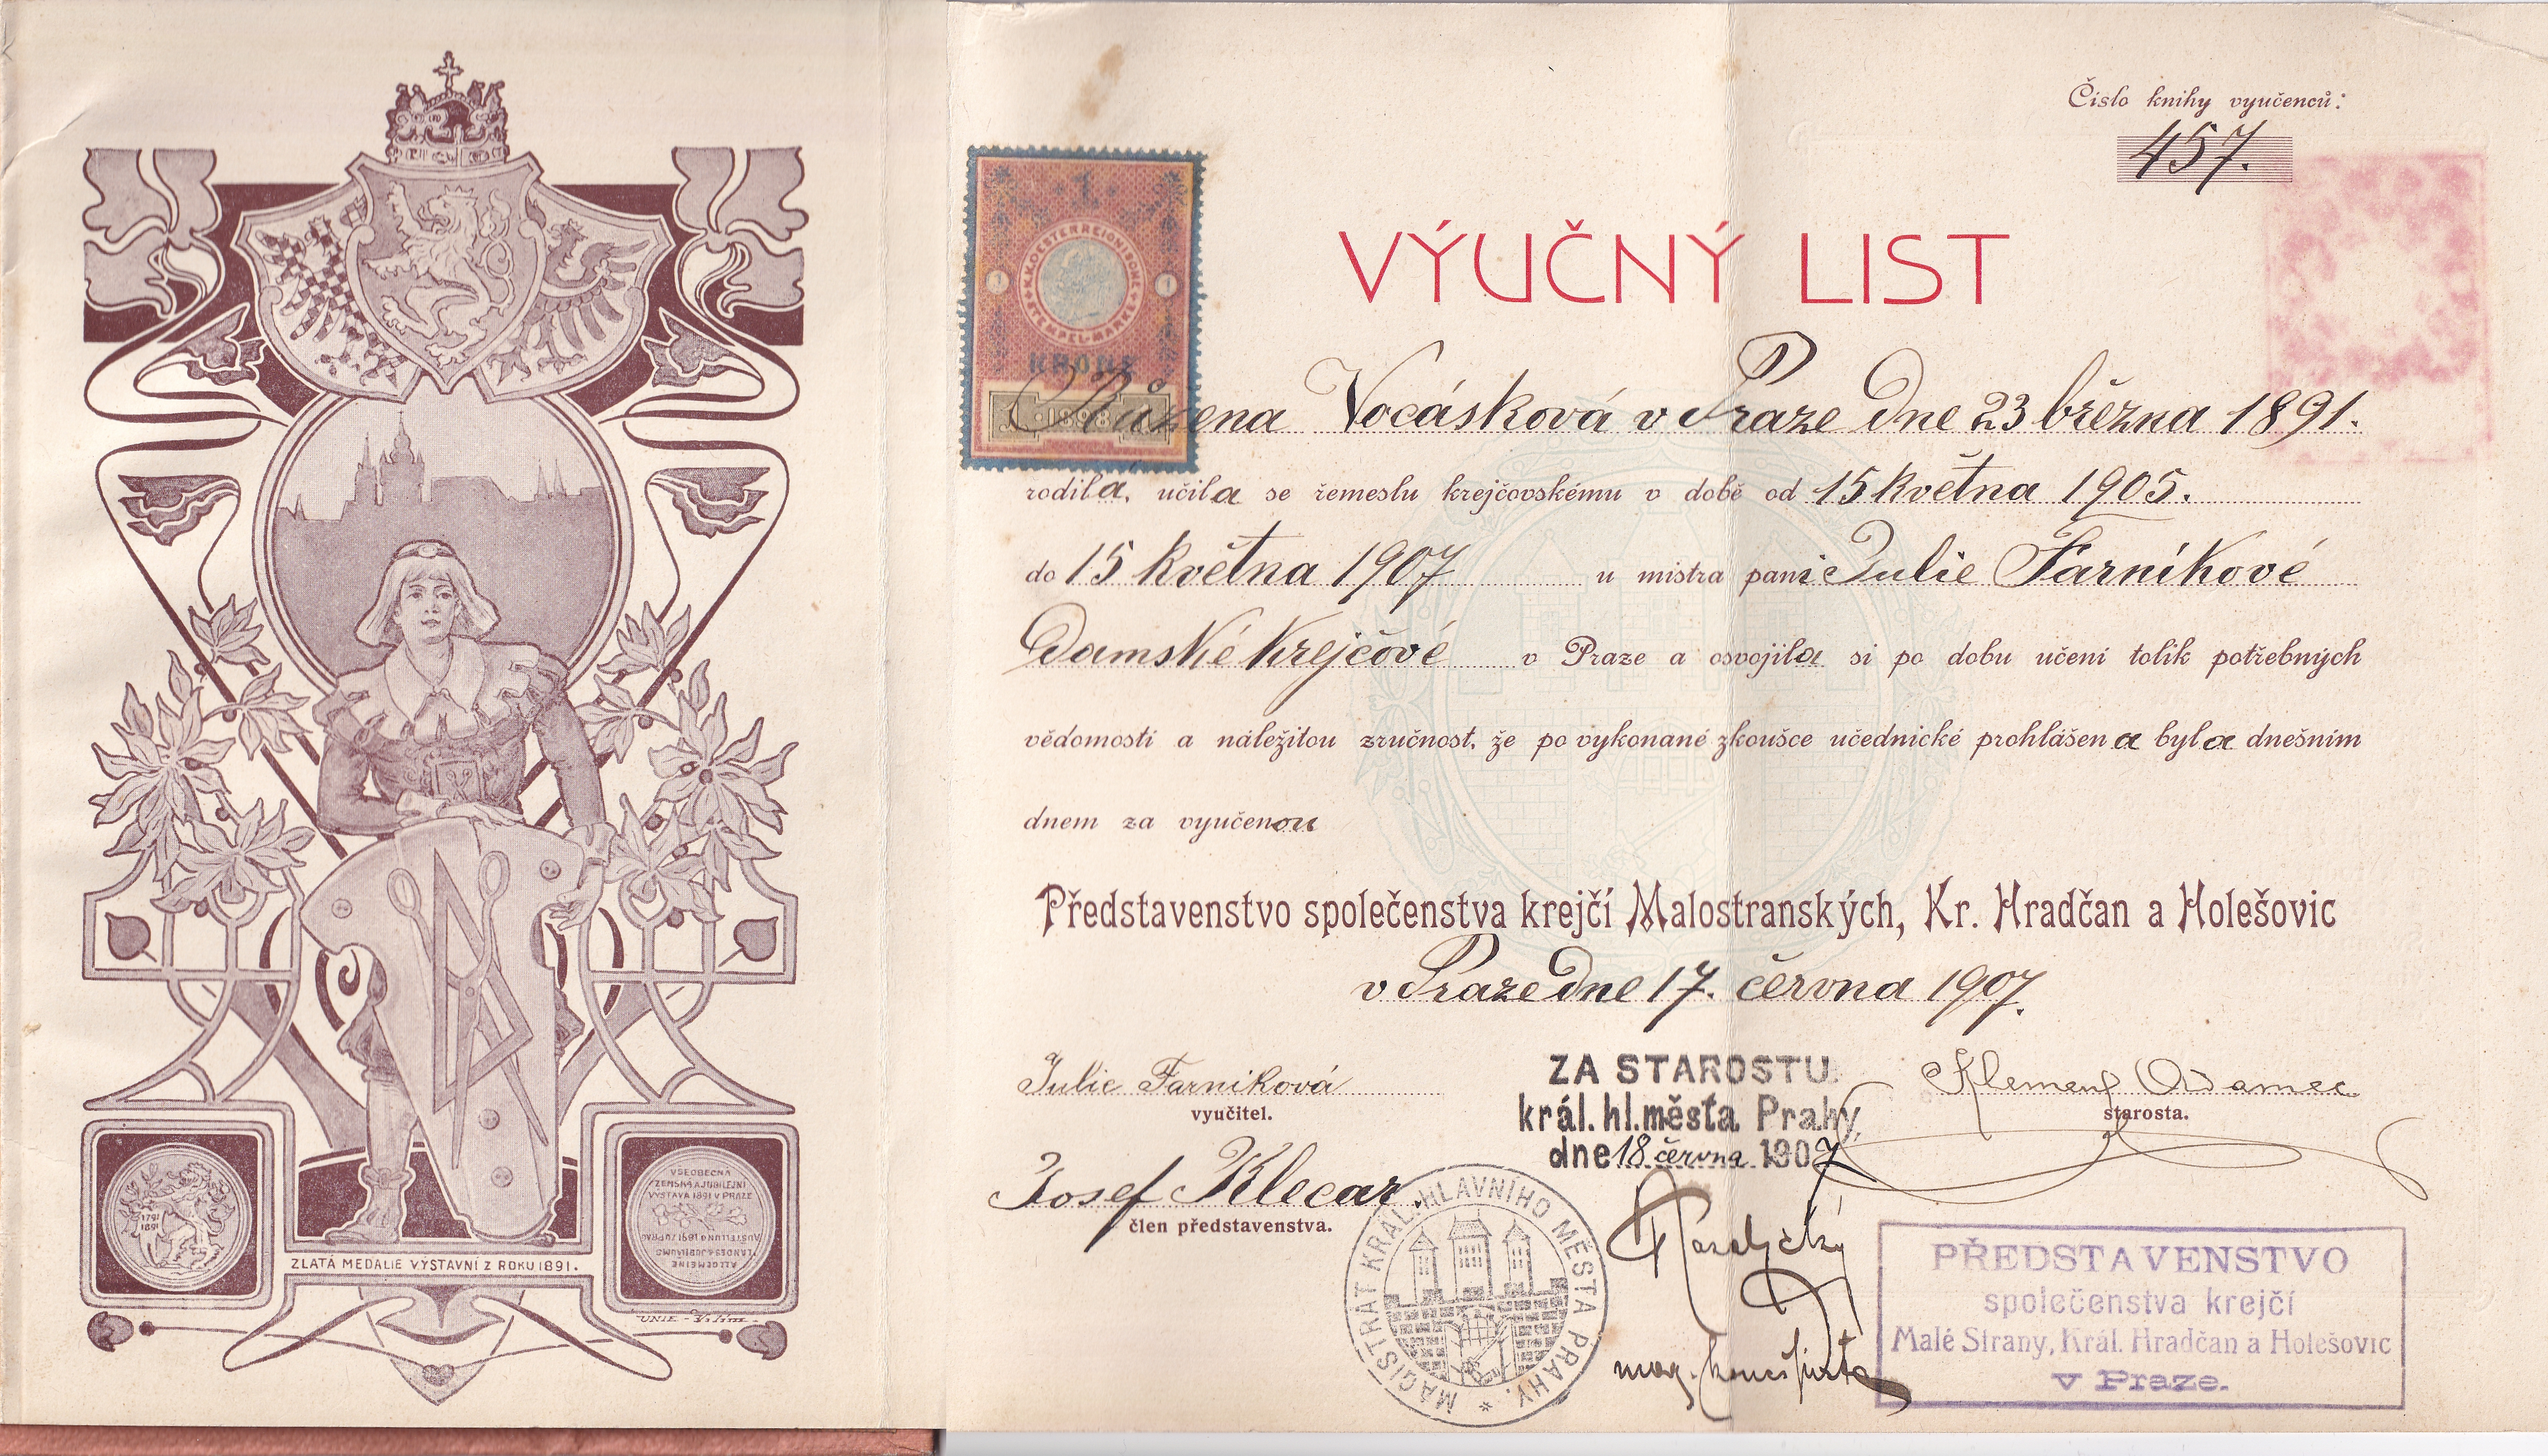 Číslo knihy vyučenců:
457.
VÝUČNÝ LIST
1
K.K. OESTERREICHISCHE STEMPEL-MARKE
1 1
KRONE
1898
Růžena Vocásková v Praze dne 23 března 1891.
rodila, učila se řemeslu krejčovskému v době od 15 května 1905.
do 15 května 1907 u mistra paní Julie Farníkové
Damské krejčové v Praze a osvojila si po dobu učení tolik potřebných
vědomostí a náležitou zručnost, že po vykonané zkoušce učednické prohlášena byla dnešním
dnem za vyučenou
Představenstvo společenstva krejčí Malostranských, Kr. Hradčan a Holešovic
v Praze dne 17. června 1907.
Julie Farniková
vyučitel.
Josef Klecar.
člen představenstva.
ZA STAROSTU
král. hl. města Prahy,
dne 18 června 1907
mag.
Klement Adamec
starosta.
MAGISTRÁT KRÁL. HLAVNÍHO MĚSTA PRAHY.
PŘEDSTAVENSTVO
společenstva krejčí
Malé Strany, Král. Hradčan a Holešovic
v Praze.
1791
1891
VŠEOBECNÁ
ZEMSKÁ A JUBILEJNÍ
VÝSTAVA 1891 V PRAZE
ALLGEMEINE
LANDES & JUBILÄUMS
AUSTELLUNG 1891 ZU PRAG
ZLATÁ MEDALIE VÝSTAVNÍ Z ROKU 1891.
UNIE